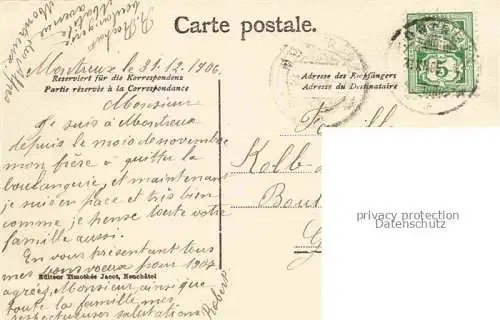 Carte postale.
Montreux le 31.12.1906.
Reserviert für die Korrespondenz
Partie réservée à la Correspondance
Adresse des Empfängers
Adresse du Destinataire
Monsieur
Je suis à Montreux
depuis le mois de novembre
mon frère a quitter la
boulangerie, et maintenant
je suis en place et très bien
comme je pense toute votre
famille aussi.
En vous présentant tous
mes bons voeux pour 1907
Editeur Timothée Jacot, Neuchâtel
agréez, Monsieur, ainsi que
toute la famille, mes
respectueuses salutations
Robert
Famille
Kolb
privacy protection
oldthing.de
5
R. Rochat
boulangerie